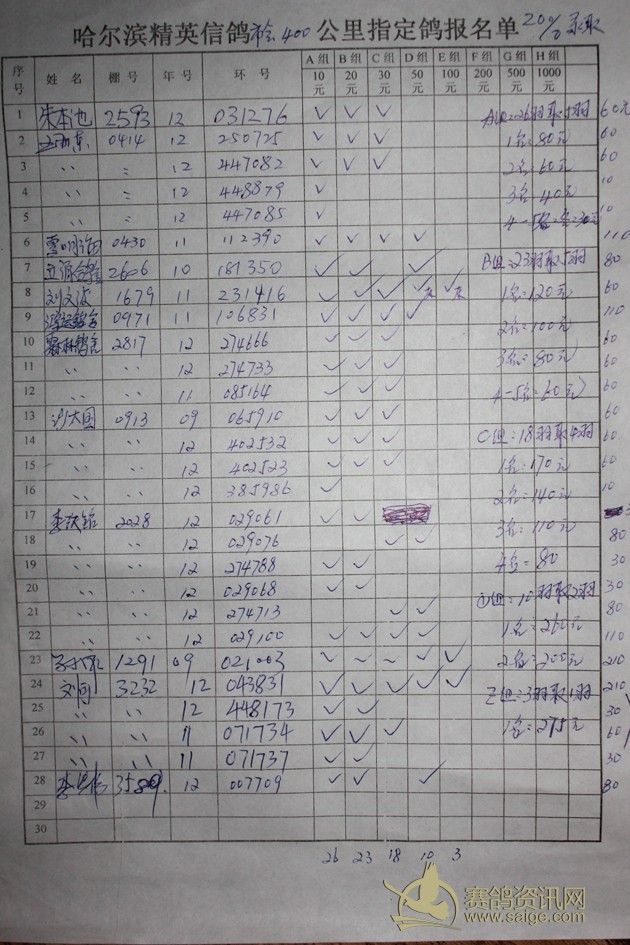 哈尔滨精英信鸽 400 公里指定鸽报名单 20% 录取
序号 姓名 棚号 年号 环号 A组10元 B组20元 C组30元 D组50元 E组100元 F组200元 G组500元 H组1000元
1 朱本池 2593 12 031276 ✓ ✓ ✓ A组:26羽取5羽 60元
2 0414 12 250725 ✓ ✓ ✓ 1名:80元 60
3 〃 〃 12 447082 ✓ ✓ ✓ 2名:60元 60
4 〃 〃 12 448879 ✓ 3名:40元 10
5 〃 〃 12 447085 ✓ 4-5名各30元 10
6 0430 11 112390 ✓ ✓ ✓ ✓ 110
7 2606 10 181350 ✓ ✓ ✓ B组:23羽取5羽 80
8 刘文波 1679 11 231416 ✓ ✓ ✓ 1名:120元 60
9 0971 11 106831 ✓ ✓ ✓ ✓ 2名:100元 110
10 2817 12 274666 ✓ ✓ ✓ 60
11 〃 〃 12 274733 ✓ ✓ ✓ 3名:80元 60
12 〃 〃 11 085164 ✓ ✓ ✓ 4-5名:60元 60
13 0913 09 065910 ✓ ✓ ✓ 60
14 〃 〃 12 402532 ✓ ✓ ✓ C组:18羽取4羽 60
15 〃 〃 12 402523 ✓ ✓ ✓ 1名:170元 60
16 〃 〃 12 385986 ✓ 2名:140元 10
17 2028 12 029061 ✓ ✓ 3名:110元
18 〃 〃 12 029076 ✓ ✓ 80
19 〃 〃 12 274788 ✓ ✓ 4名:80 30
20 〃 〃 12 029068 ✓ ✓ D组:10羽取2羽 30
21 〃 〃 12 274713 ✓ ✓ 80
22 〃 〃 12 029100 ✓ ✓ ✓ ✓ 1名:260元 110
23 1291 09 021003 ✓ ✓ ✓ ✓ ✓ 2名:200元 210
24 刘向 3232 12 043831 ✓ ✓ ✓ ✓ ✓ E组:3羽取1羽 210
25 〃 〃 12 448173 ✓ ✓ 30
26 〃 〃 11 071734 ✓ ✓ ✓ 1名:275元 60
27 〃 〃 11 071737 ✓ ✓ 30
28 12 007709 ✓ ✓ ✓ 80
29
30
26 23 18 10 3
赛鸽资讯网
www.saige.com